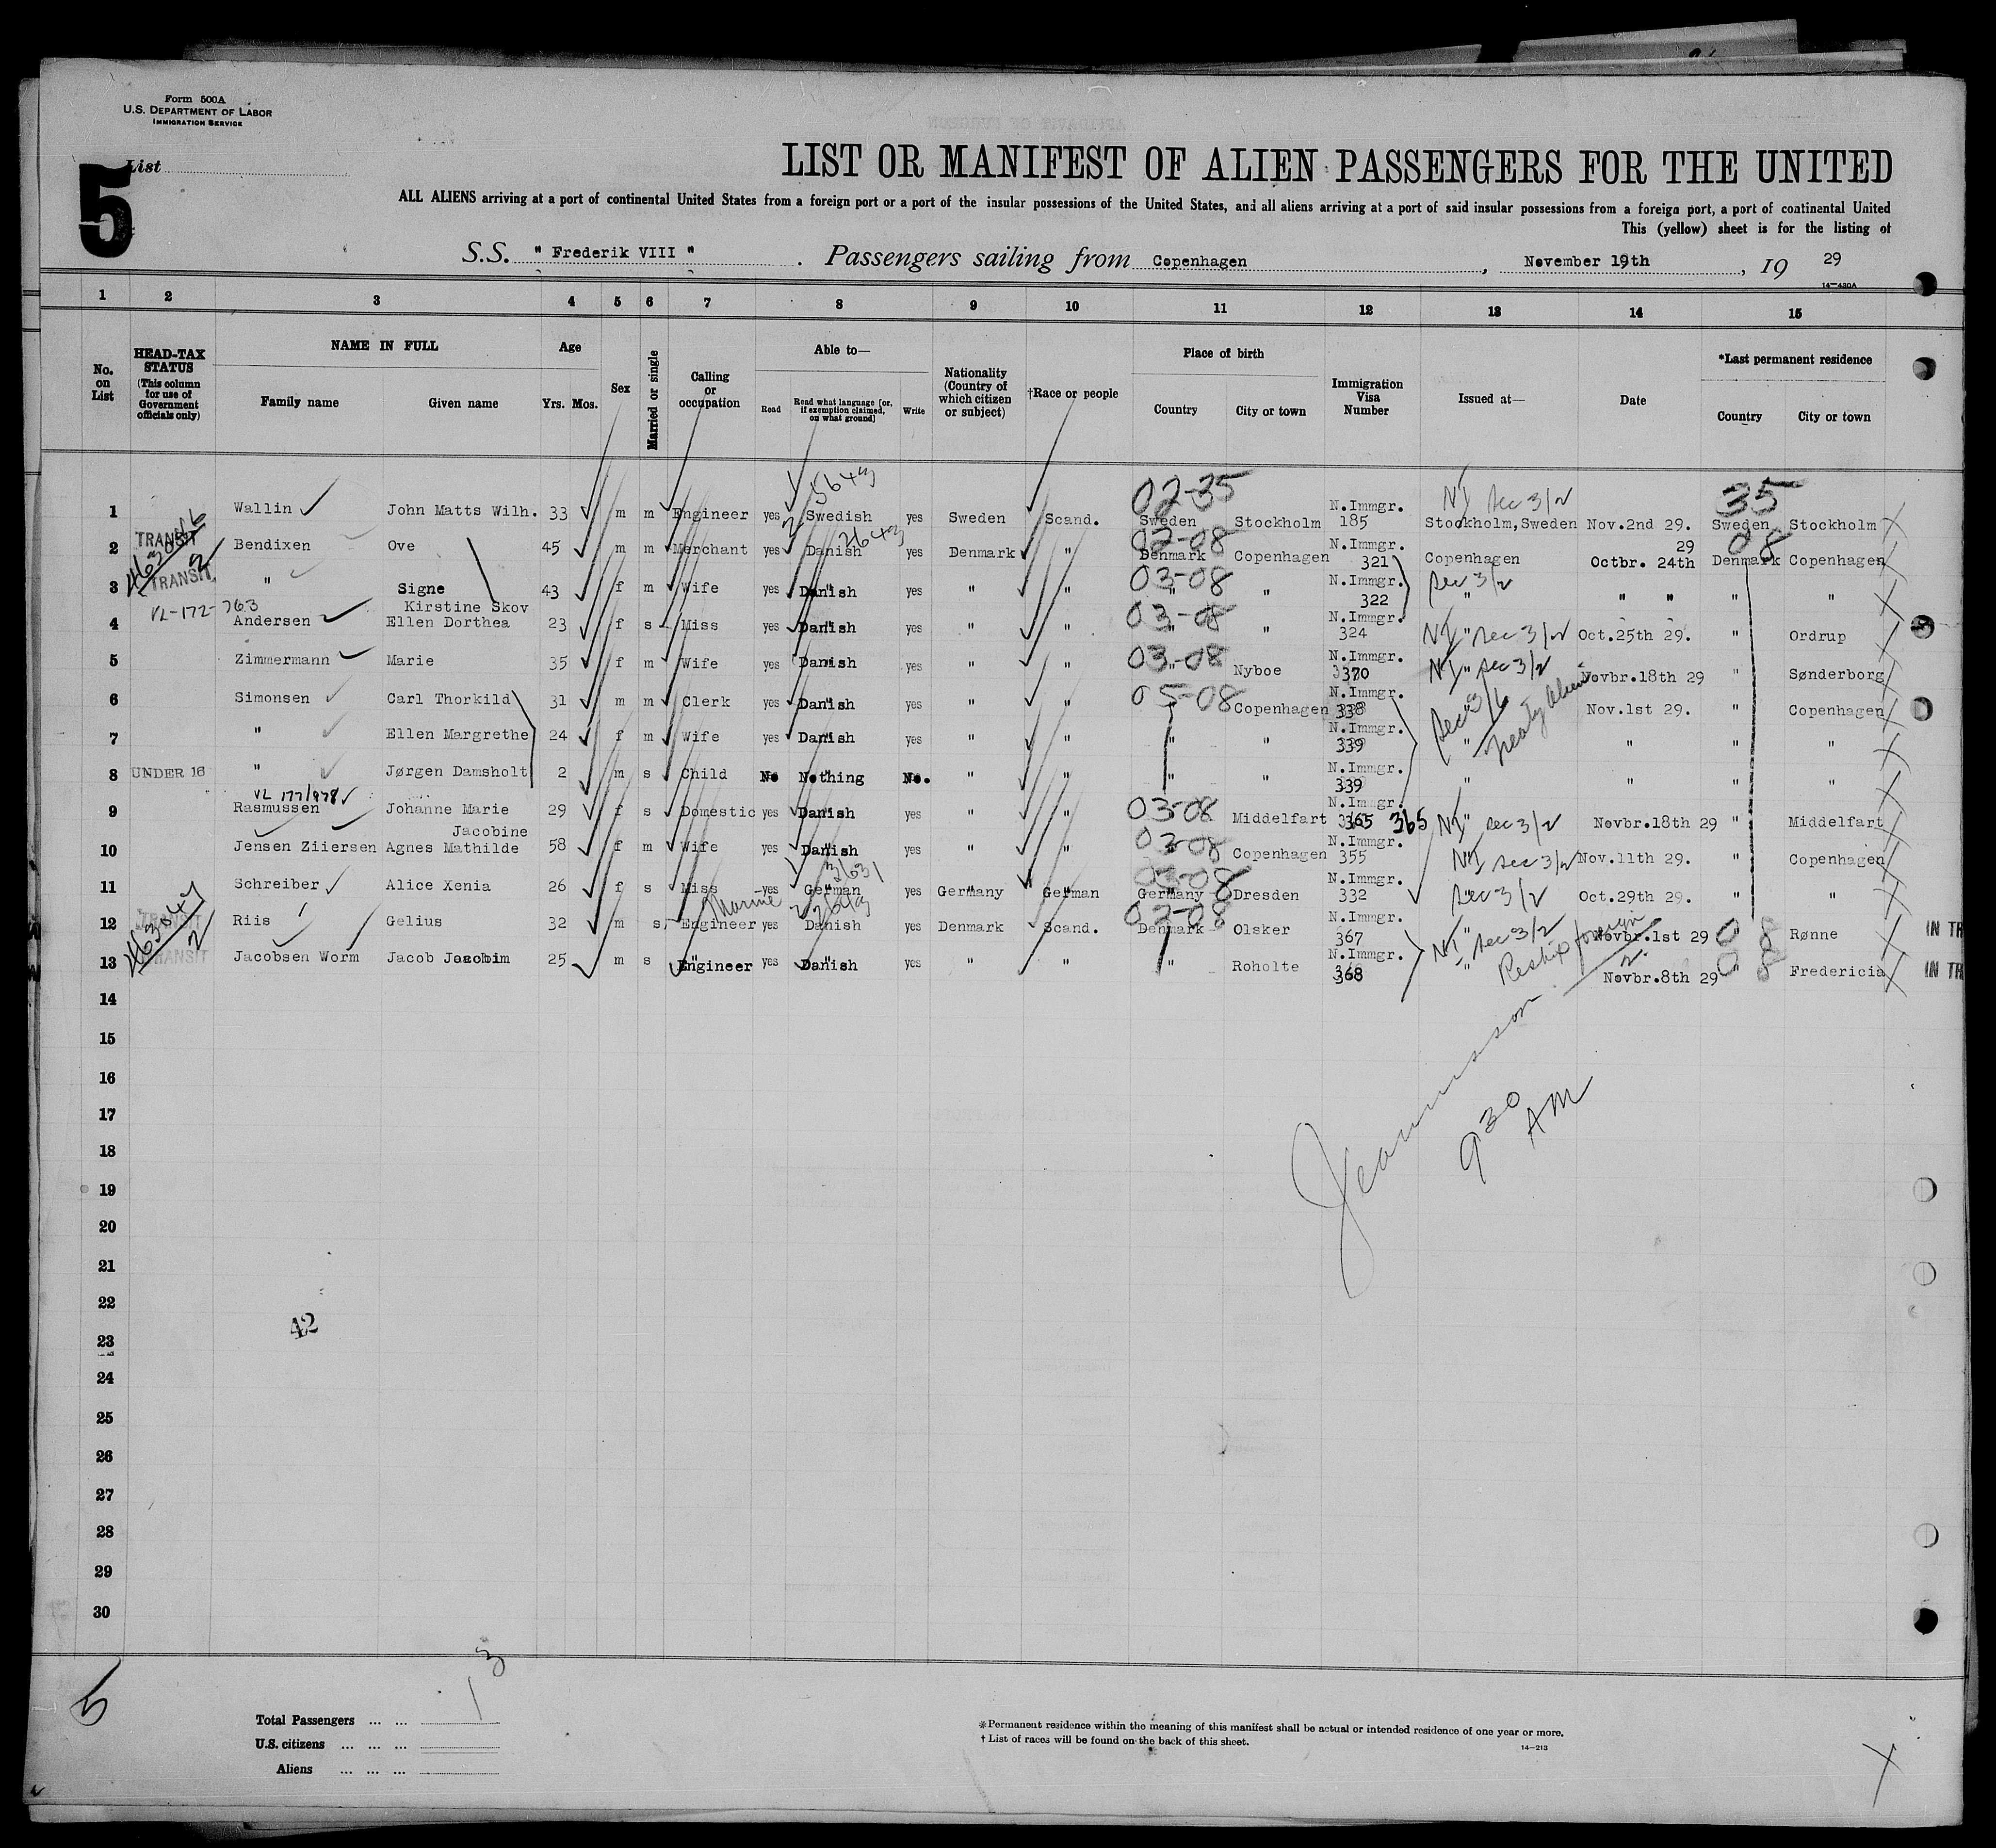 Form 500A
U.S. DEPARTMENT OF LABOR
IMMIGRATION SERVICE
List
5
LIST OR MANIFEST OF ALIEN PASSENGERS FOR THE UNITED
ALL ALIENS arriving at a port of continental United States from a foreign port or a port of the insular possessions of the United States, and all aliens arriving at a port of said insular possessions from a foreign port, a port of continental United
This (yellow) sheet is for the listing of
S.S. " Frederik VIII " . Passengers sailing from Copenhagen , November 19th , 19 29
14-430A
1 2 3 4 5 6 7 8 9 10 11 12 13 14 15
No. on List
HEAD-TAX STATUS (This column for use of Government officials only)
NAME IN FULL
Family name Given name
Age
Yrs. Mos.
Sex
Married or single
Calling or occupation
Able to—
Read
Read what language [or, if exemption claimed, on what ground]
Write
Nationality (Country of which citizen or subject)
†Race or people
Place of birth
Country City or town
Immigration Visa Number
Issued at—
Date
*Last permanent residence
Country City or town
5643 02-35 N.Immgr. NI Sec 3/2 35
1 Wallin John Matts Wilh. 33 m m Engineer yes Swedish yes Sweden Scand. Sweden Stockholm 185 Stockholm,Sweden Nov.2nd 29. Sweden Stockholm
TRANSIT 2643 02-08 N.Immgr. 29 08
2 Bendixen Ove 45 m m Merchant yes Danish yes Denmark " Denmark Copenhagen 321 Copenhagen Octbr. 24th Denmark Copenhagen
TRANSIT 03-08 N.Immgr. Sec 3/2
3 " Signe 43 f m Wife yes Danish yes " " " " 322 " " " " "
VL-172-763 Kirstine Skov 03-08 N.Immgr.
4 Andersen Ellen Dorthea 23 f s Miss yes Danish yes " " " " 324 NI " Sec 3/2 Oct.25th 29. " Ordrup
03-08 N.Immgr.
5 Zimmermann Marie 35 f m Wife yes Danish yes " " " Nyboe 3370 NI " Sec 3/2 Novbr.18th 29 " Sønderborg
05-08 N.Immgr. Sec 3/6 Treaty Alien
6 Simonsen Carl Thorkild 31 m m Clerk yes Danish yes " " " Copenhagen 338 " Nov.1st 29. " Copenhagen
N.Immgr.
7 " Ellen Margrethe 24 f m Wife yes Danish yes " " " " 339 " " " "
N.Immgr.
8 UNDER 16 " Jørgen Damsholt 2 m s Child No Nothing No. " " " " 339 " " " "
VL 177/978 03-08 N.Immgr.
9 Rasmussen Johanne Marie 29 f s Domestic yes Danish yes " " " Middelfart 365 365 NI " Sec 3/2 Novbr.18th 29 " Middelfart
Jacobine 03-08 N.Immgr.
10 Jensen Ziiersen Agnes Mathilde 58 f m Wife yes Danish yes " " Copenhagen 355 NI Sec 3/2 Nov.11th 29. " Copenhagen
3631 03-08 N.Immgr.
11 Schreiber Alice Xenia 26 f s Miss yes German yes Germany German Germany Dresden 332 Sec 3/2 Oct.29th 29. " "
TRANSIT Marine 2643 02-08 N.Immgr.
12 Riis Gelius 32 m s. Engineer yes Danish yes Denmark Scand. Denmark Olsker 367 NI Sec 3/2 Novbr.1st 29 08 Rønne IN TR
TRANSIT N.Immgr. Reship foreign
13 Jacobsen Worm Jacob Jacobim 25 m s Engineer yes Danish yes " " " Roholte 368 " Novbr.8th 29 08 Fredericia IN TR
14
15
16
17
18
19
20
21
22
23
24
25
26
27
28
29
30
9 30 AM
42
5
13
Total Passengers ... ...
U.S. citizens ... ... ...
Aliens ... ... ...
*Permanent residence within the meaning of this manifest shall be actual or intended residence of one year or more.
† List of races will be found on the back of this sheet.
14-213